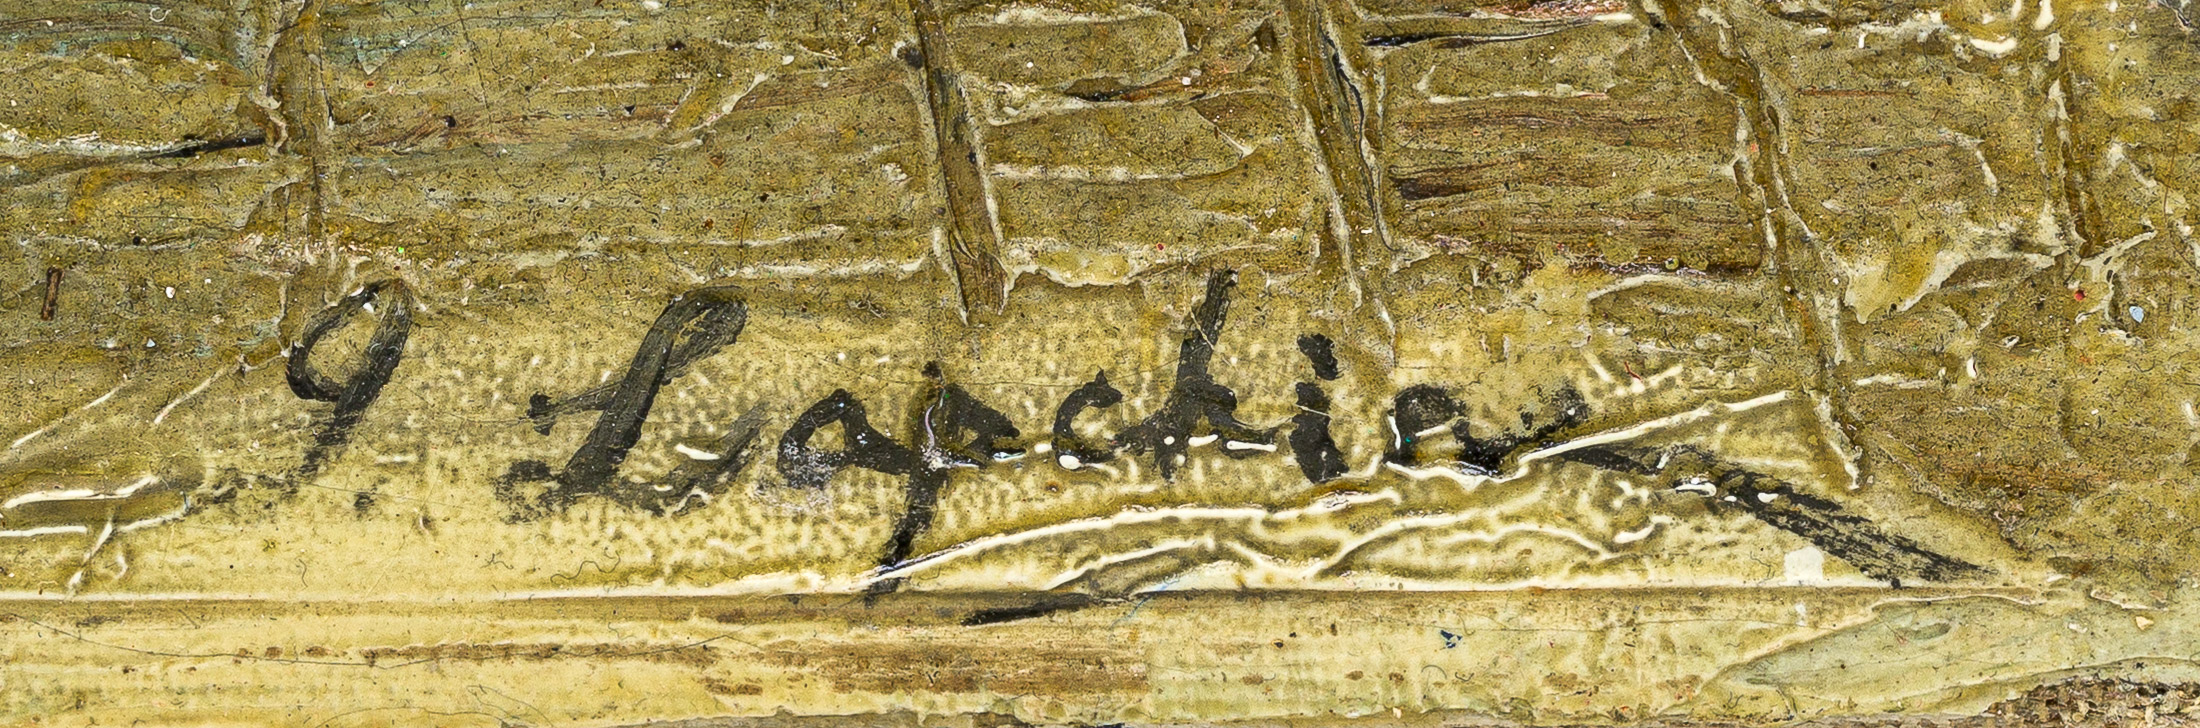 G Lapchine